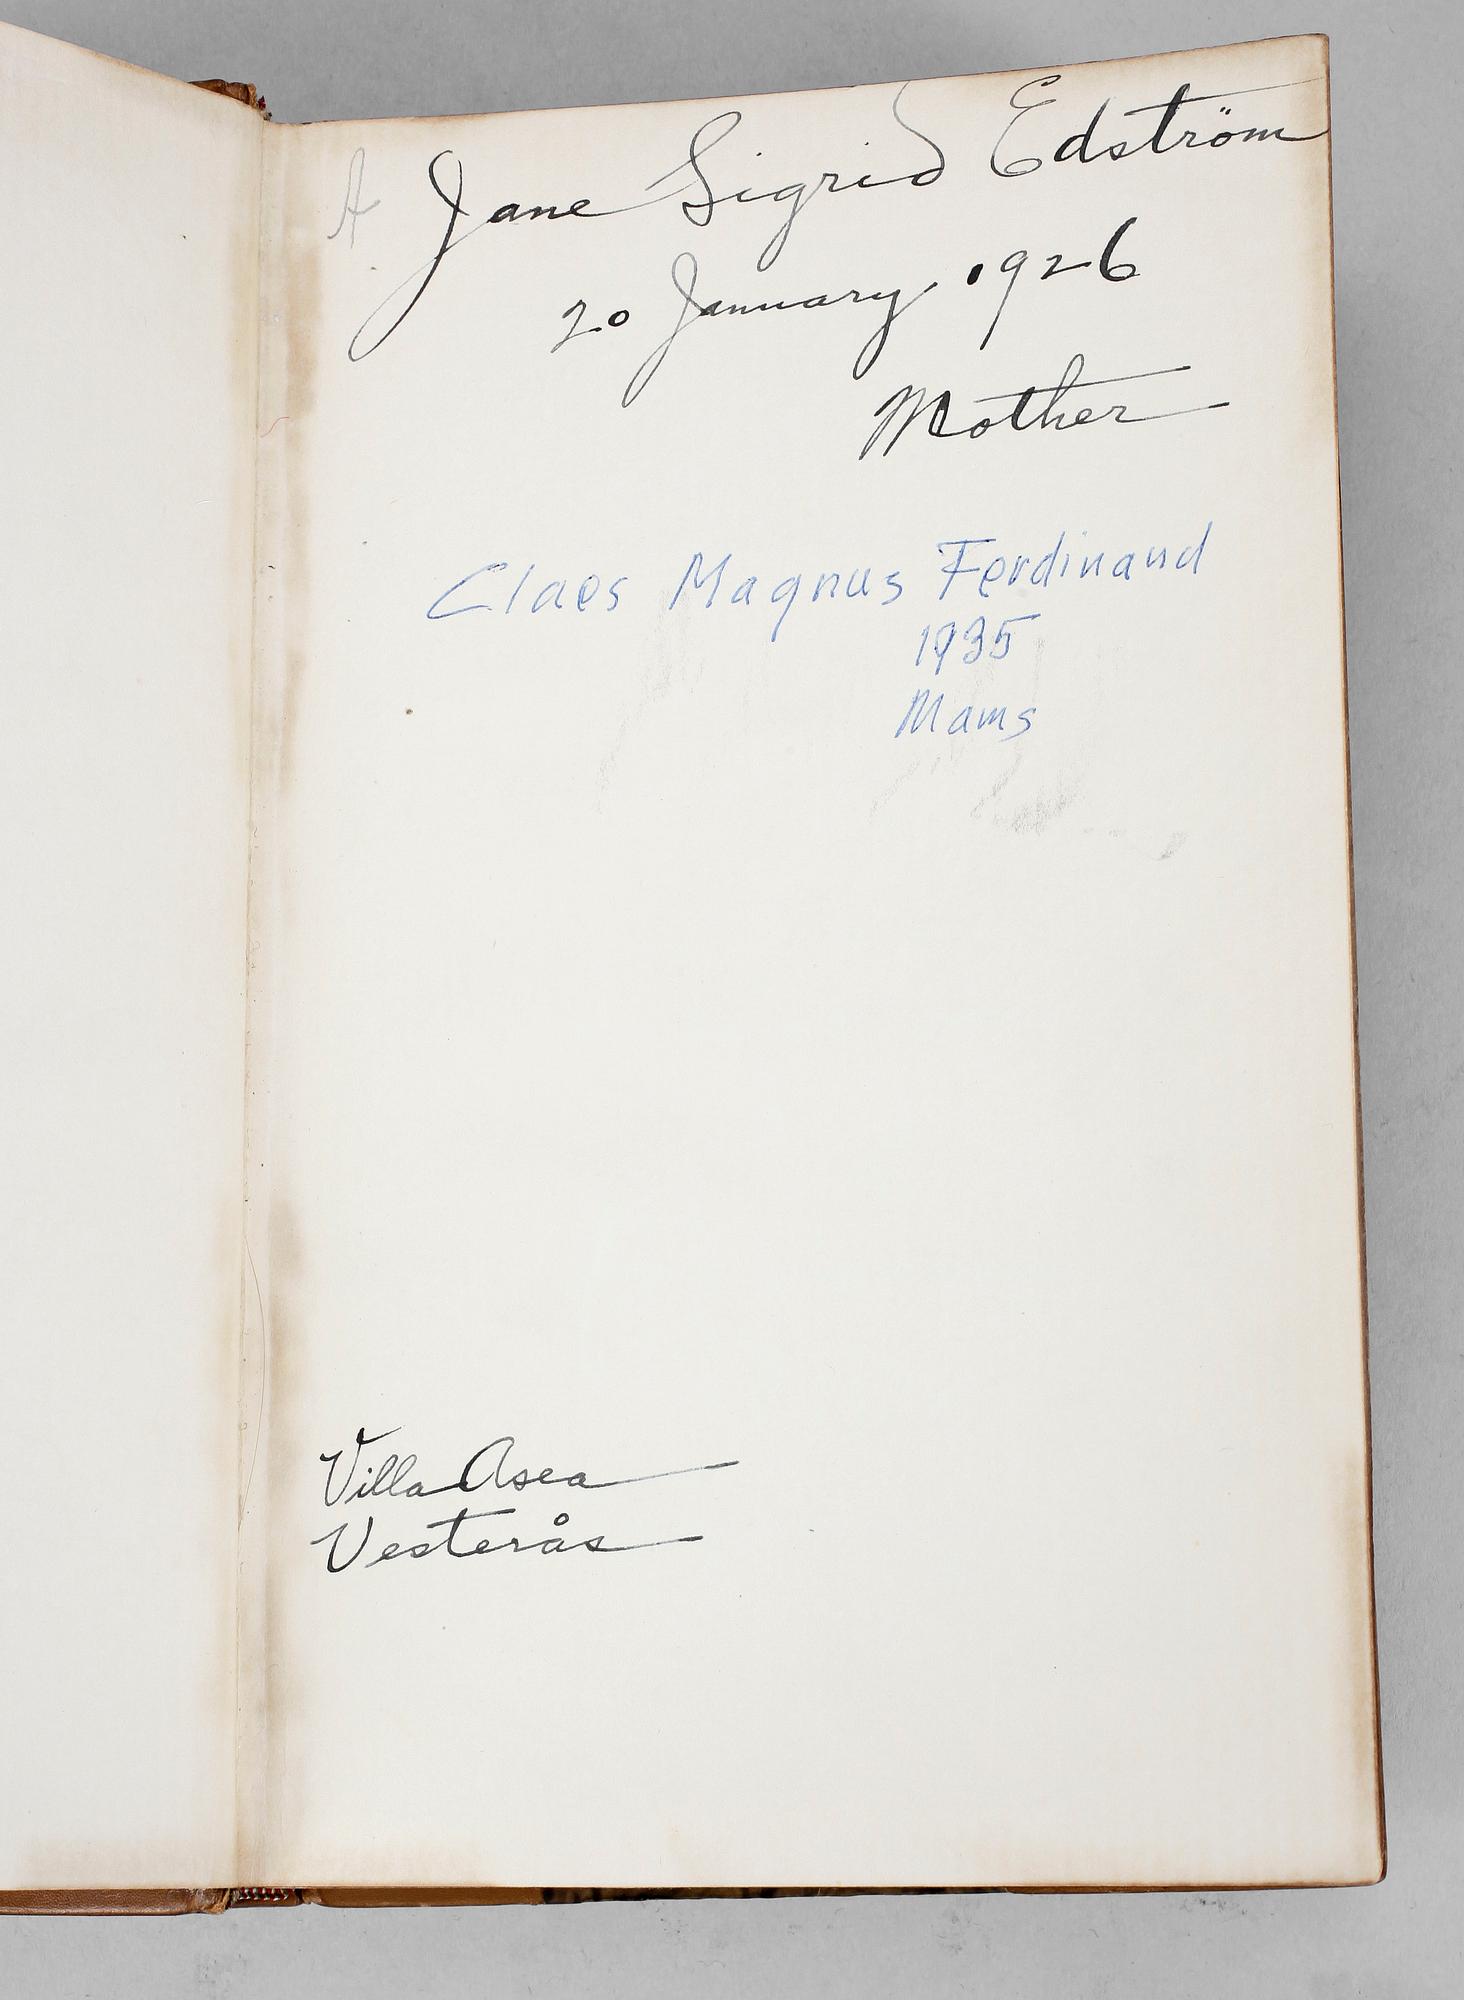 A Jane Sigrid Edström
20 January 1926
Mother
Claes Magnus Ferdinand
1935
Mams
Villa Asea
Vesterås